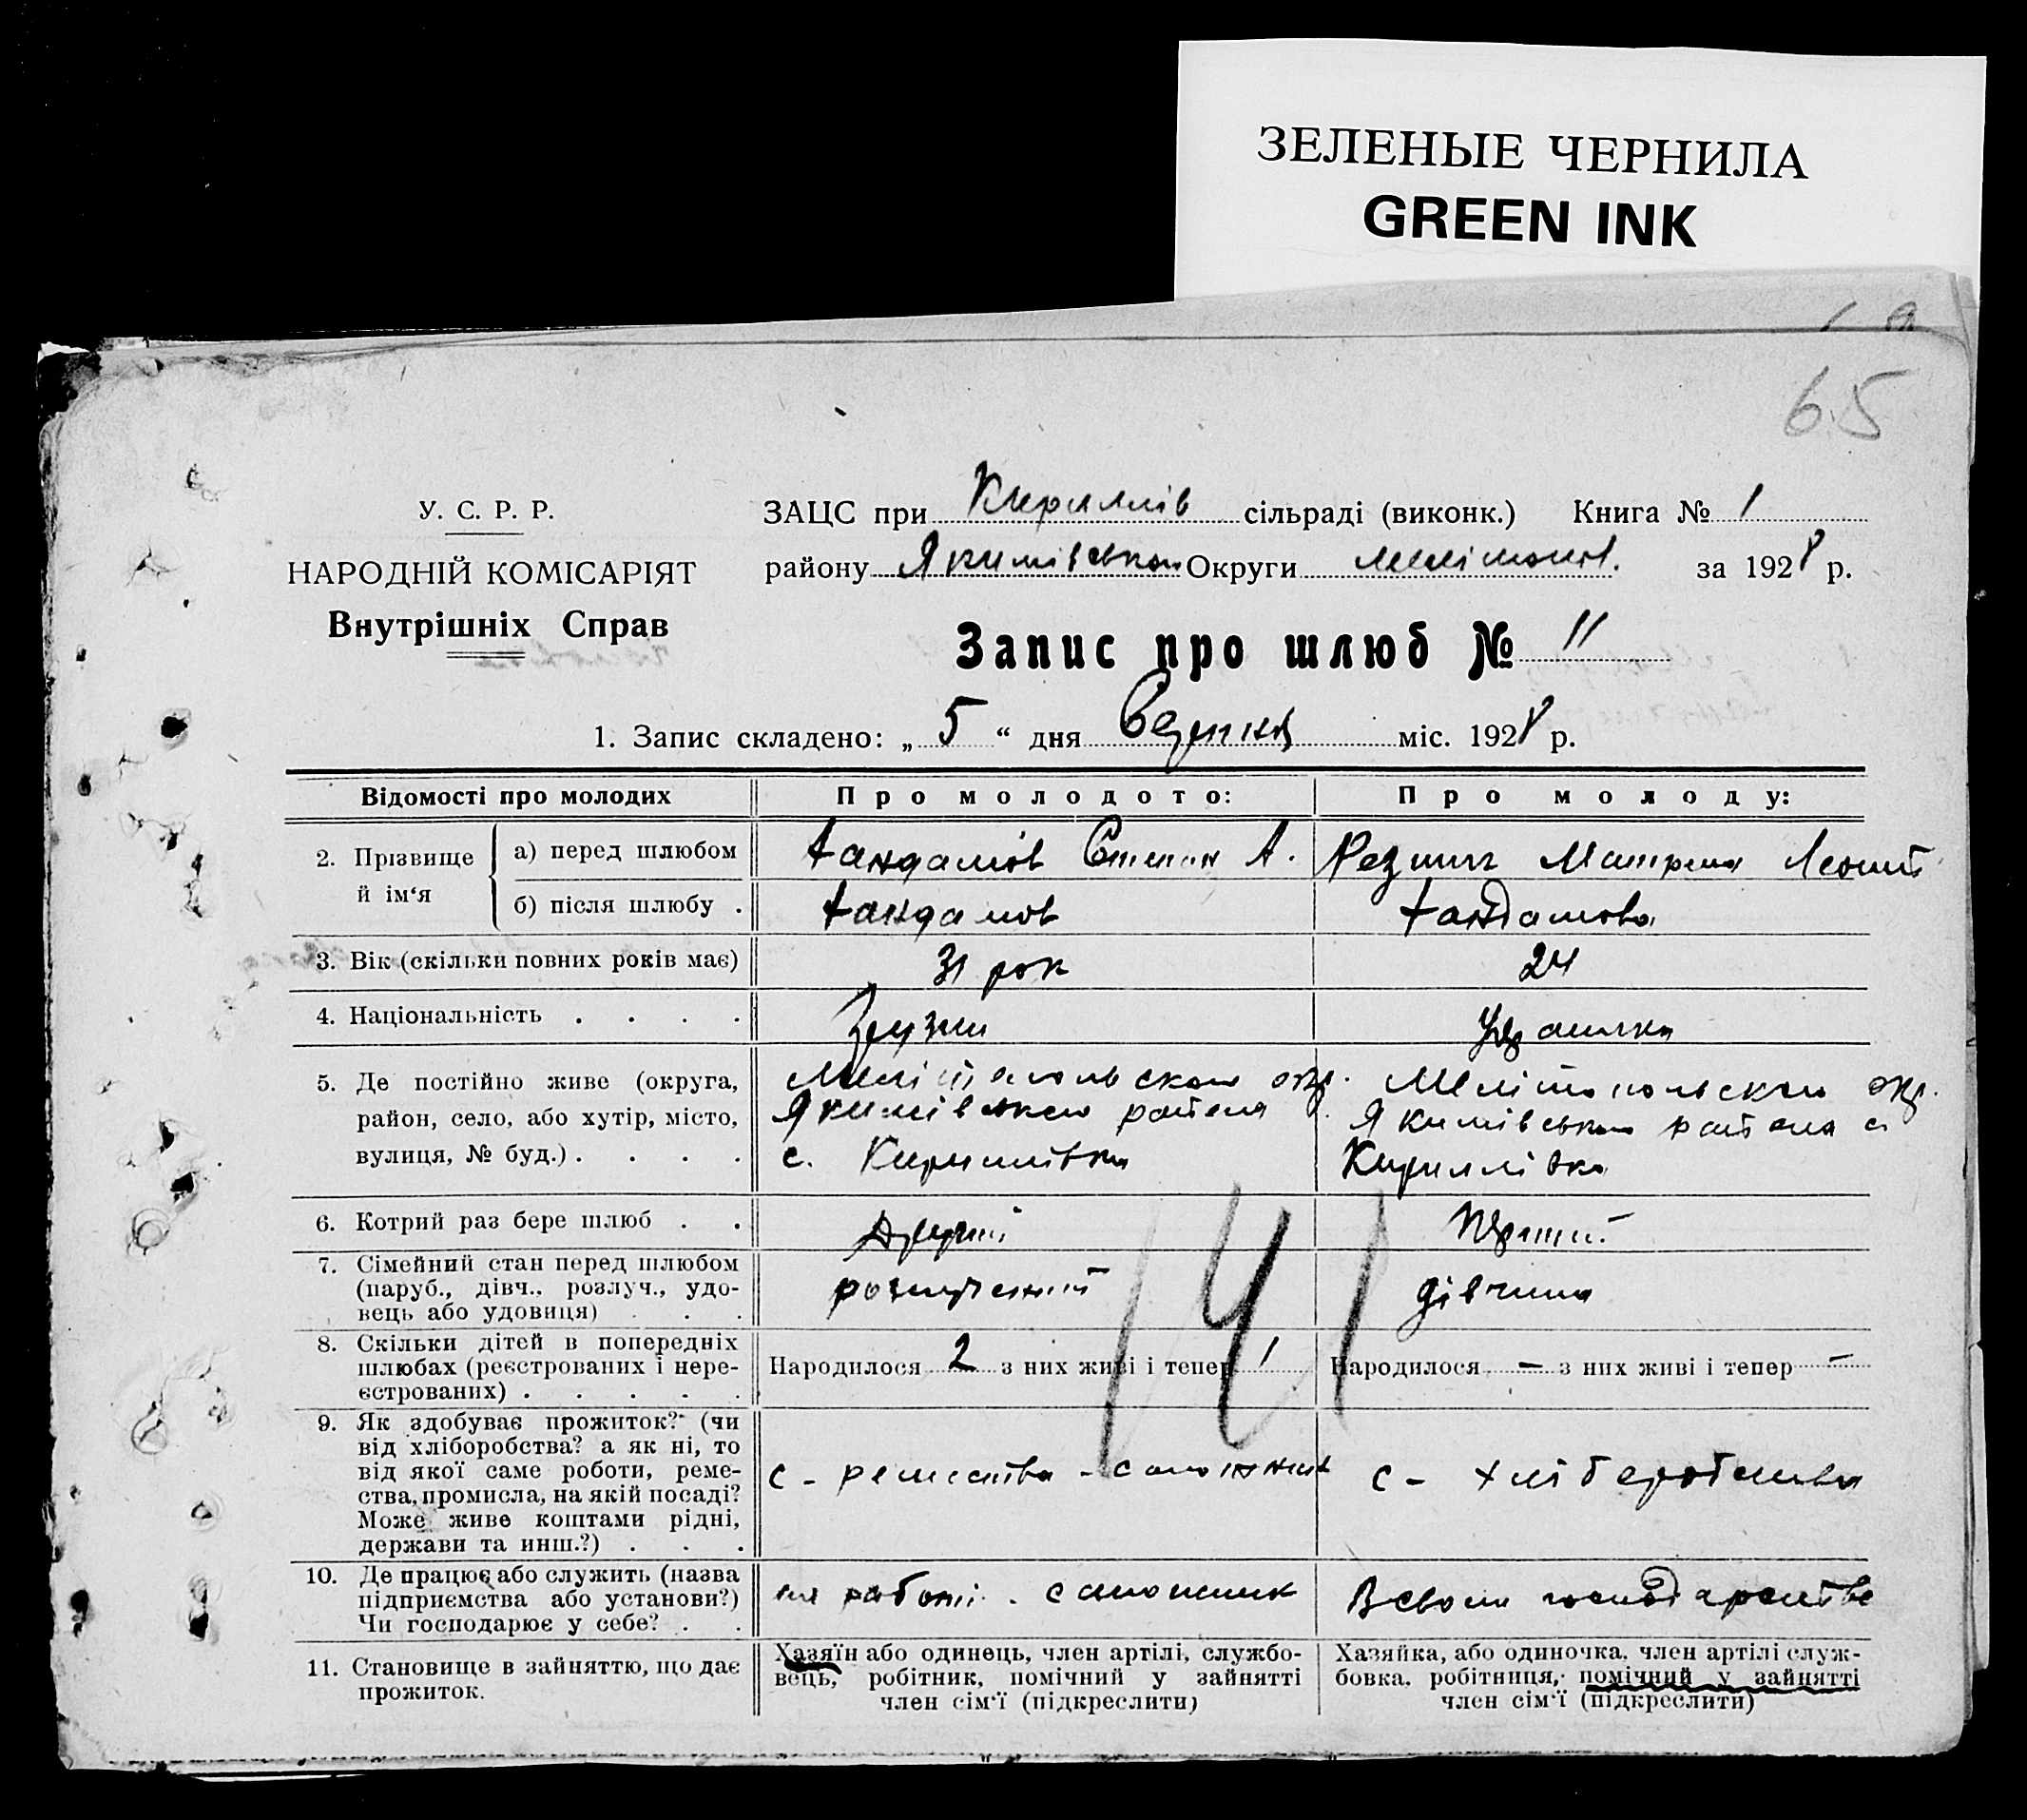 ЗЕЛЕНЫЕ ЧЕРНИЛА
GREEN INK
65
У. С. Р. Р.
НАРОДНІЙ КОМІСАРІЯТ
Внутрішніх Справ
ЗАЦС при Кириллів сільраді (виконк.) Книга № 1
району Якимівського Округи Мелітопол. за 1928 р.
Запис про шлюб № 11
1. Запис складено: „ 5 “ дня Серпня міс. 1928 р.
Відомості про молодих Про молодого: Про молоду:
2. Прізвище й ім‘я а) перед шлюбом Хандамов Степан А. Резник Матрена Леонт
б) після шлюбу . Хандамов Хандамова
3. Вік (скільки повних років має) 31 рок 24
4. Національність . . . .
5. Де постійно живе (округа, район, село, або хутір, місто, вулиця, № буд.) . . . .
Мелітопольскои окр.
Якимівскои района
с. Кирилівка
Мелітопольскои окр.
Якимівськои района с.
Кириллівка
6. Котрий раз бере шлюб . . Другий Перший
7. Сімейний стан перед шлюбом
(паруб., дівч., розлуч., удо-
вець або удовиця) . . . розлучений дівчина
8. Скільки дітей в попередніх
шлюбах (реєстрованих і нере-
єстрованих) . . . . .
Народилося 2 з них живі і тепер 1 Народилося – з них живі і тепер –
141
9. Як здобуває прожиток? (чи
від хліборобства? а як ні, то
від якої саме роботи, реме-
ства, промисла, на якій посаді?
Може живе коштами рідні,
держави та инш.?) . . .
с - ремества - сапожник с - хліборобства
10. Де працює або служить (назва
підприємства або установи?)
Чи господарює у себе? . .
на работі. сапожник В своем господарстве
11. Становище в зайняттю, що дає
прожиток.
Хазяїн або одинець, член артілі, службо-
вець, робітник, помічний у зайнятті
член сім‘ї (підкреслити)
Хазяйка, або одиночка, член артілі служ-
бовка, робітниця, помічний у зайнятті
член сім‘ї (підкреслити)